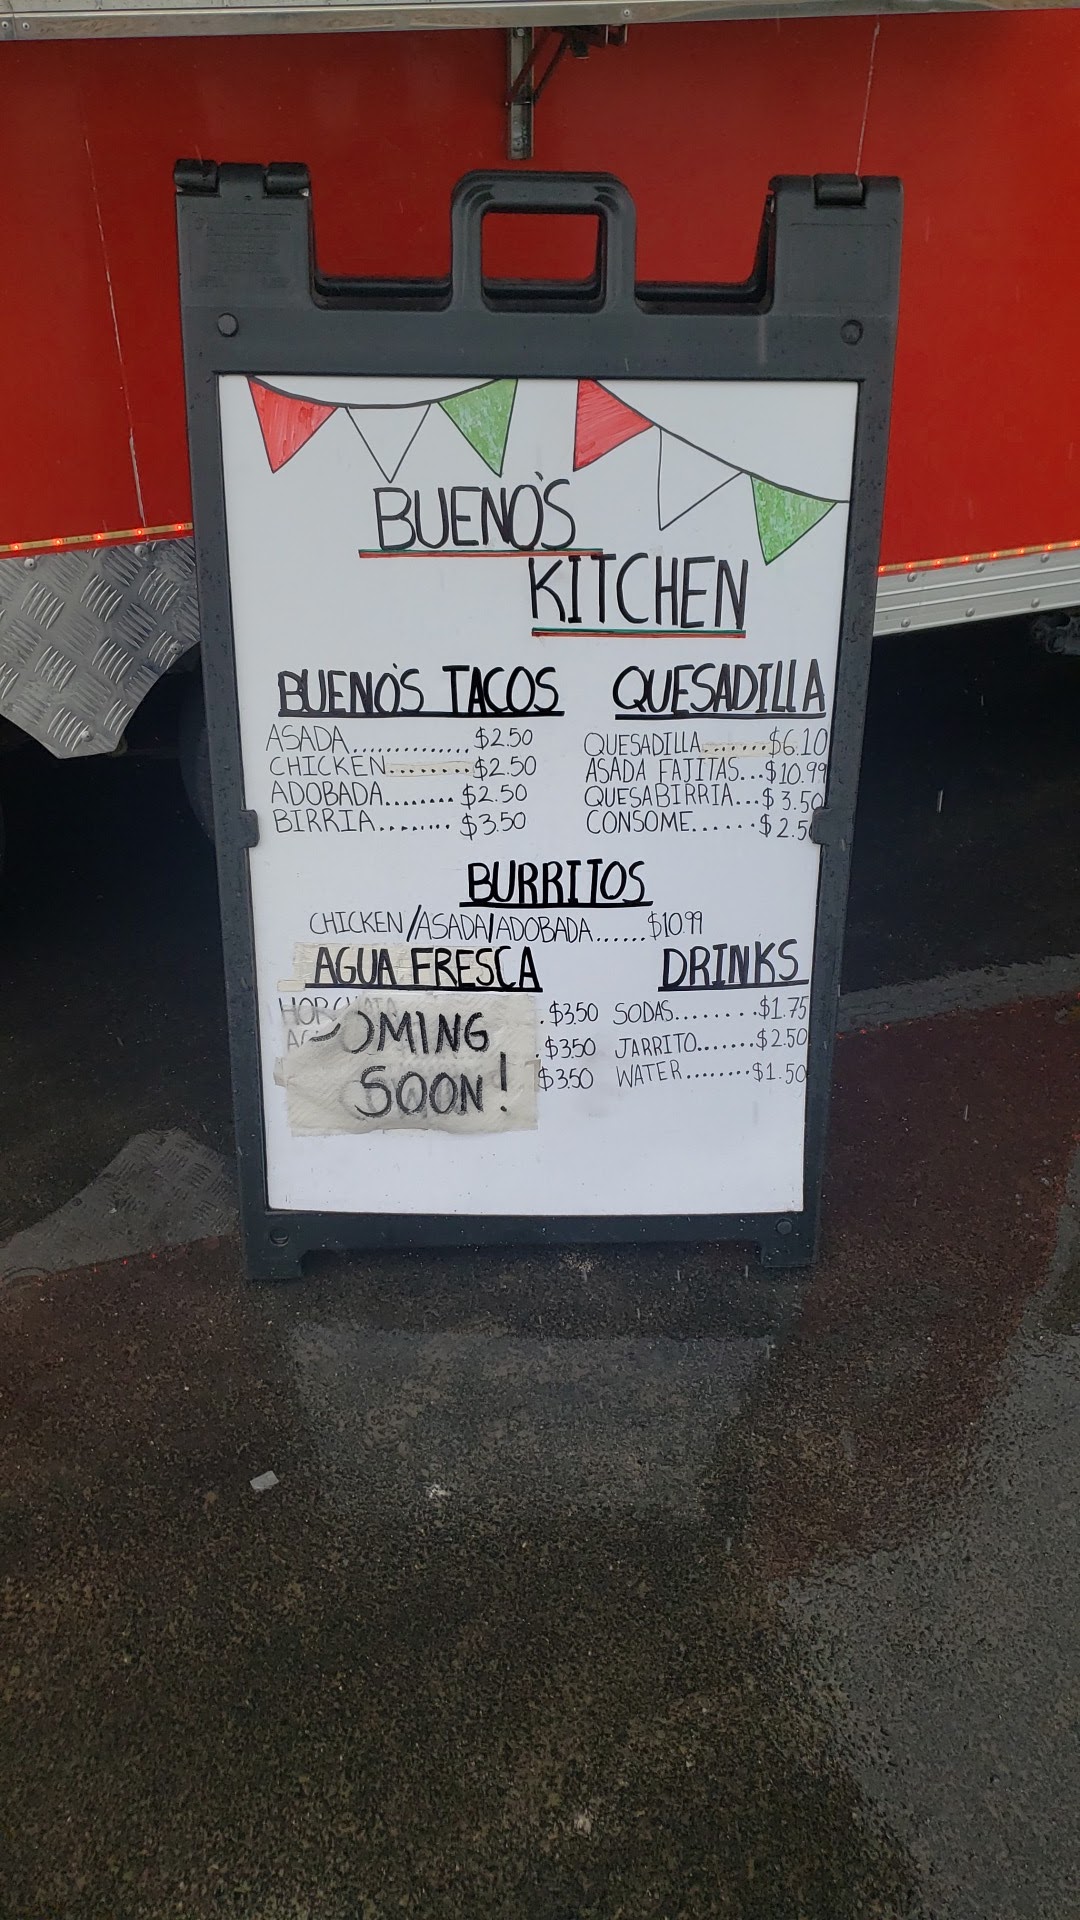 BUENO'S
KITCHEN
BUENO'S TACOS
ASADA.............$2.50
CHICKEN........$2.50
ADOBADA........$2.50
BIRRIA........$3.50
QUESADILLA
QUESADILLA.......$6.10
ASADA FAJITAS...$10.99
QUESABIRRIA...$3.50
CONSOME......$2.50
BURRITOS
CHICKEN/ASADA/ADOBADA......$10.99
AGUA FRESCA
HORCHATA .$3.50
.$3.50
$3.50
COMING
SOON!
DRINKS
SODAS........$1.75
JARRITO.......$2.50
WATER........$1.50